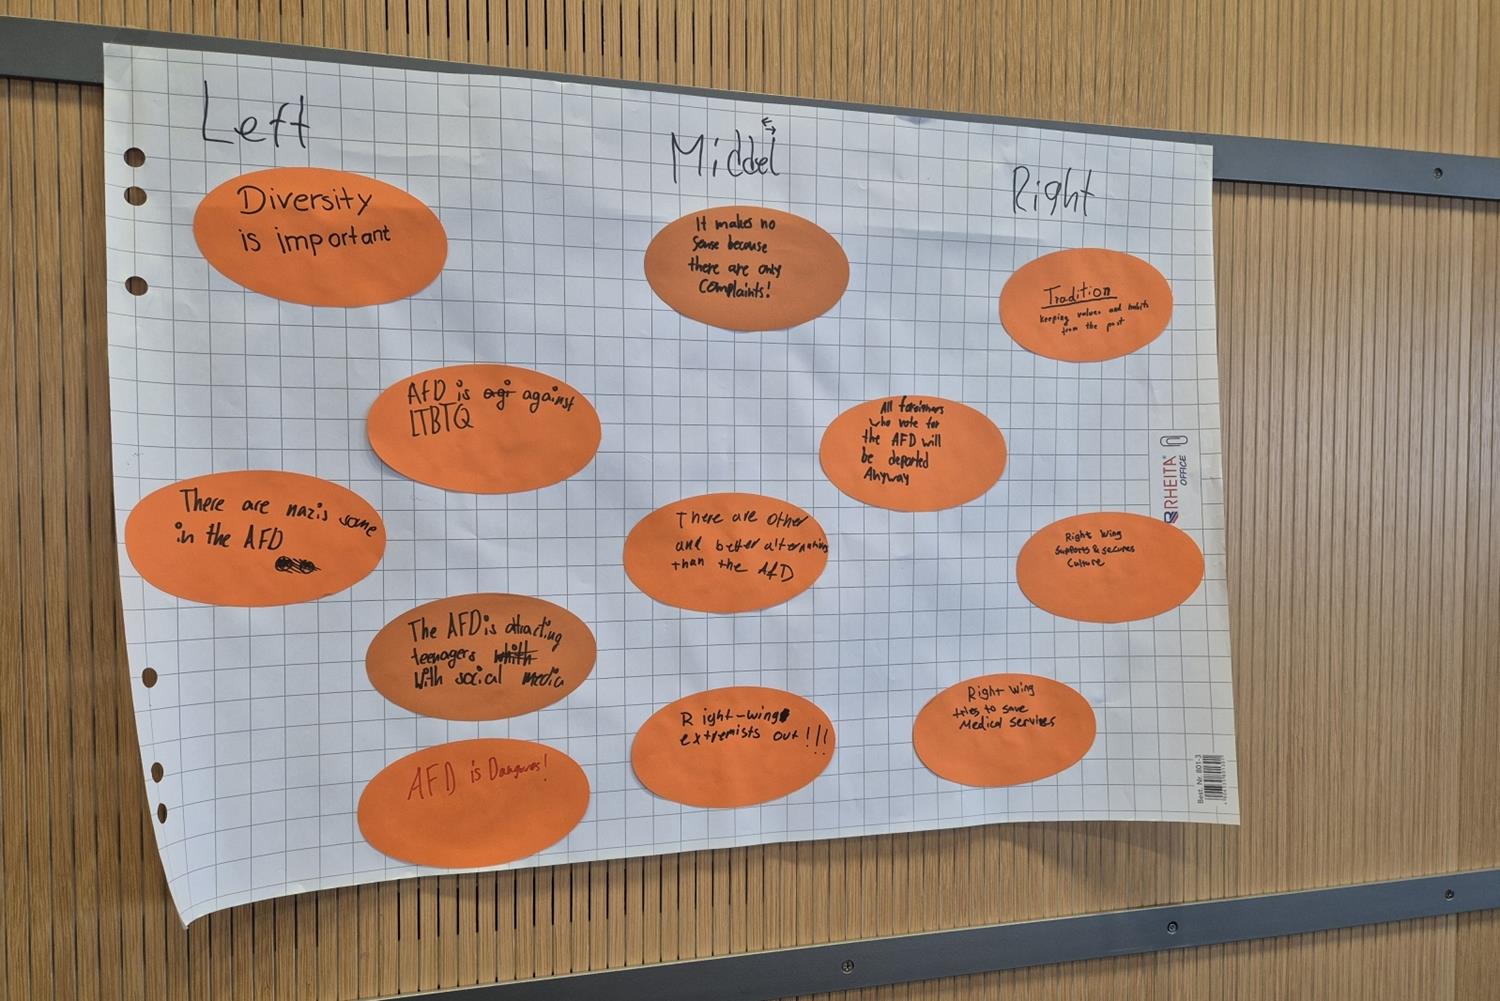 Left
Diversity
is important
AfD is against
LTBTQ
There are nazis some
in the AFD
The AFD is attracting
teenagers
With social media
AFD is Dangerous!
Middel
It makes no
Sense because
there are only
Complaints!
There are other
and better alternatives
than the AfD
Right-wing
extremists out!!!
Right
Tradition
keeping values and habits
from the past
All foreiners
who vote for
the AFD will
be deported
Anyway
Right Wing
Supports & secures
Culture
Right Wing
tries to save
Medical Services
RHEITA
OFFICE
Best. Nr. 801-3